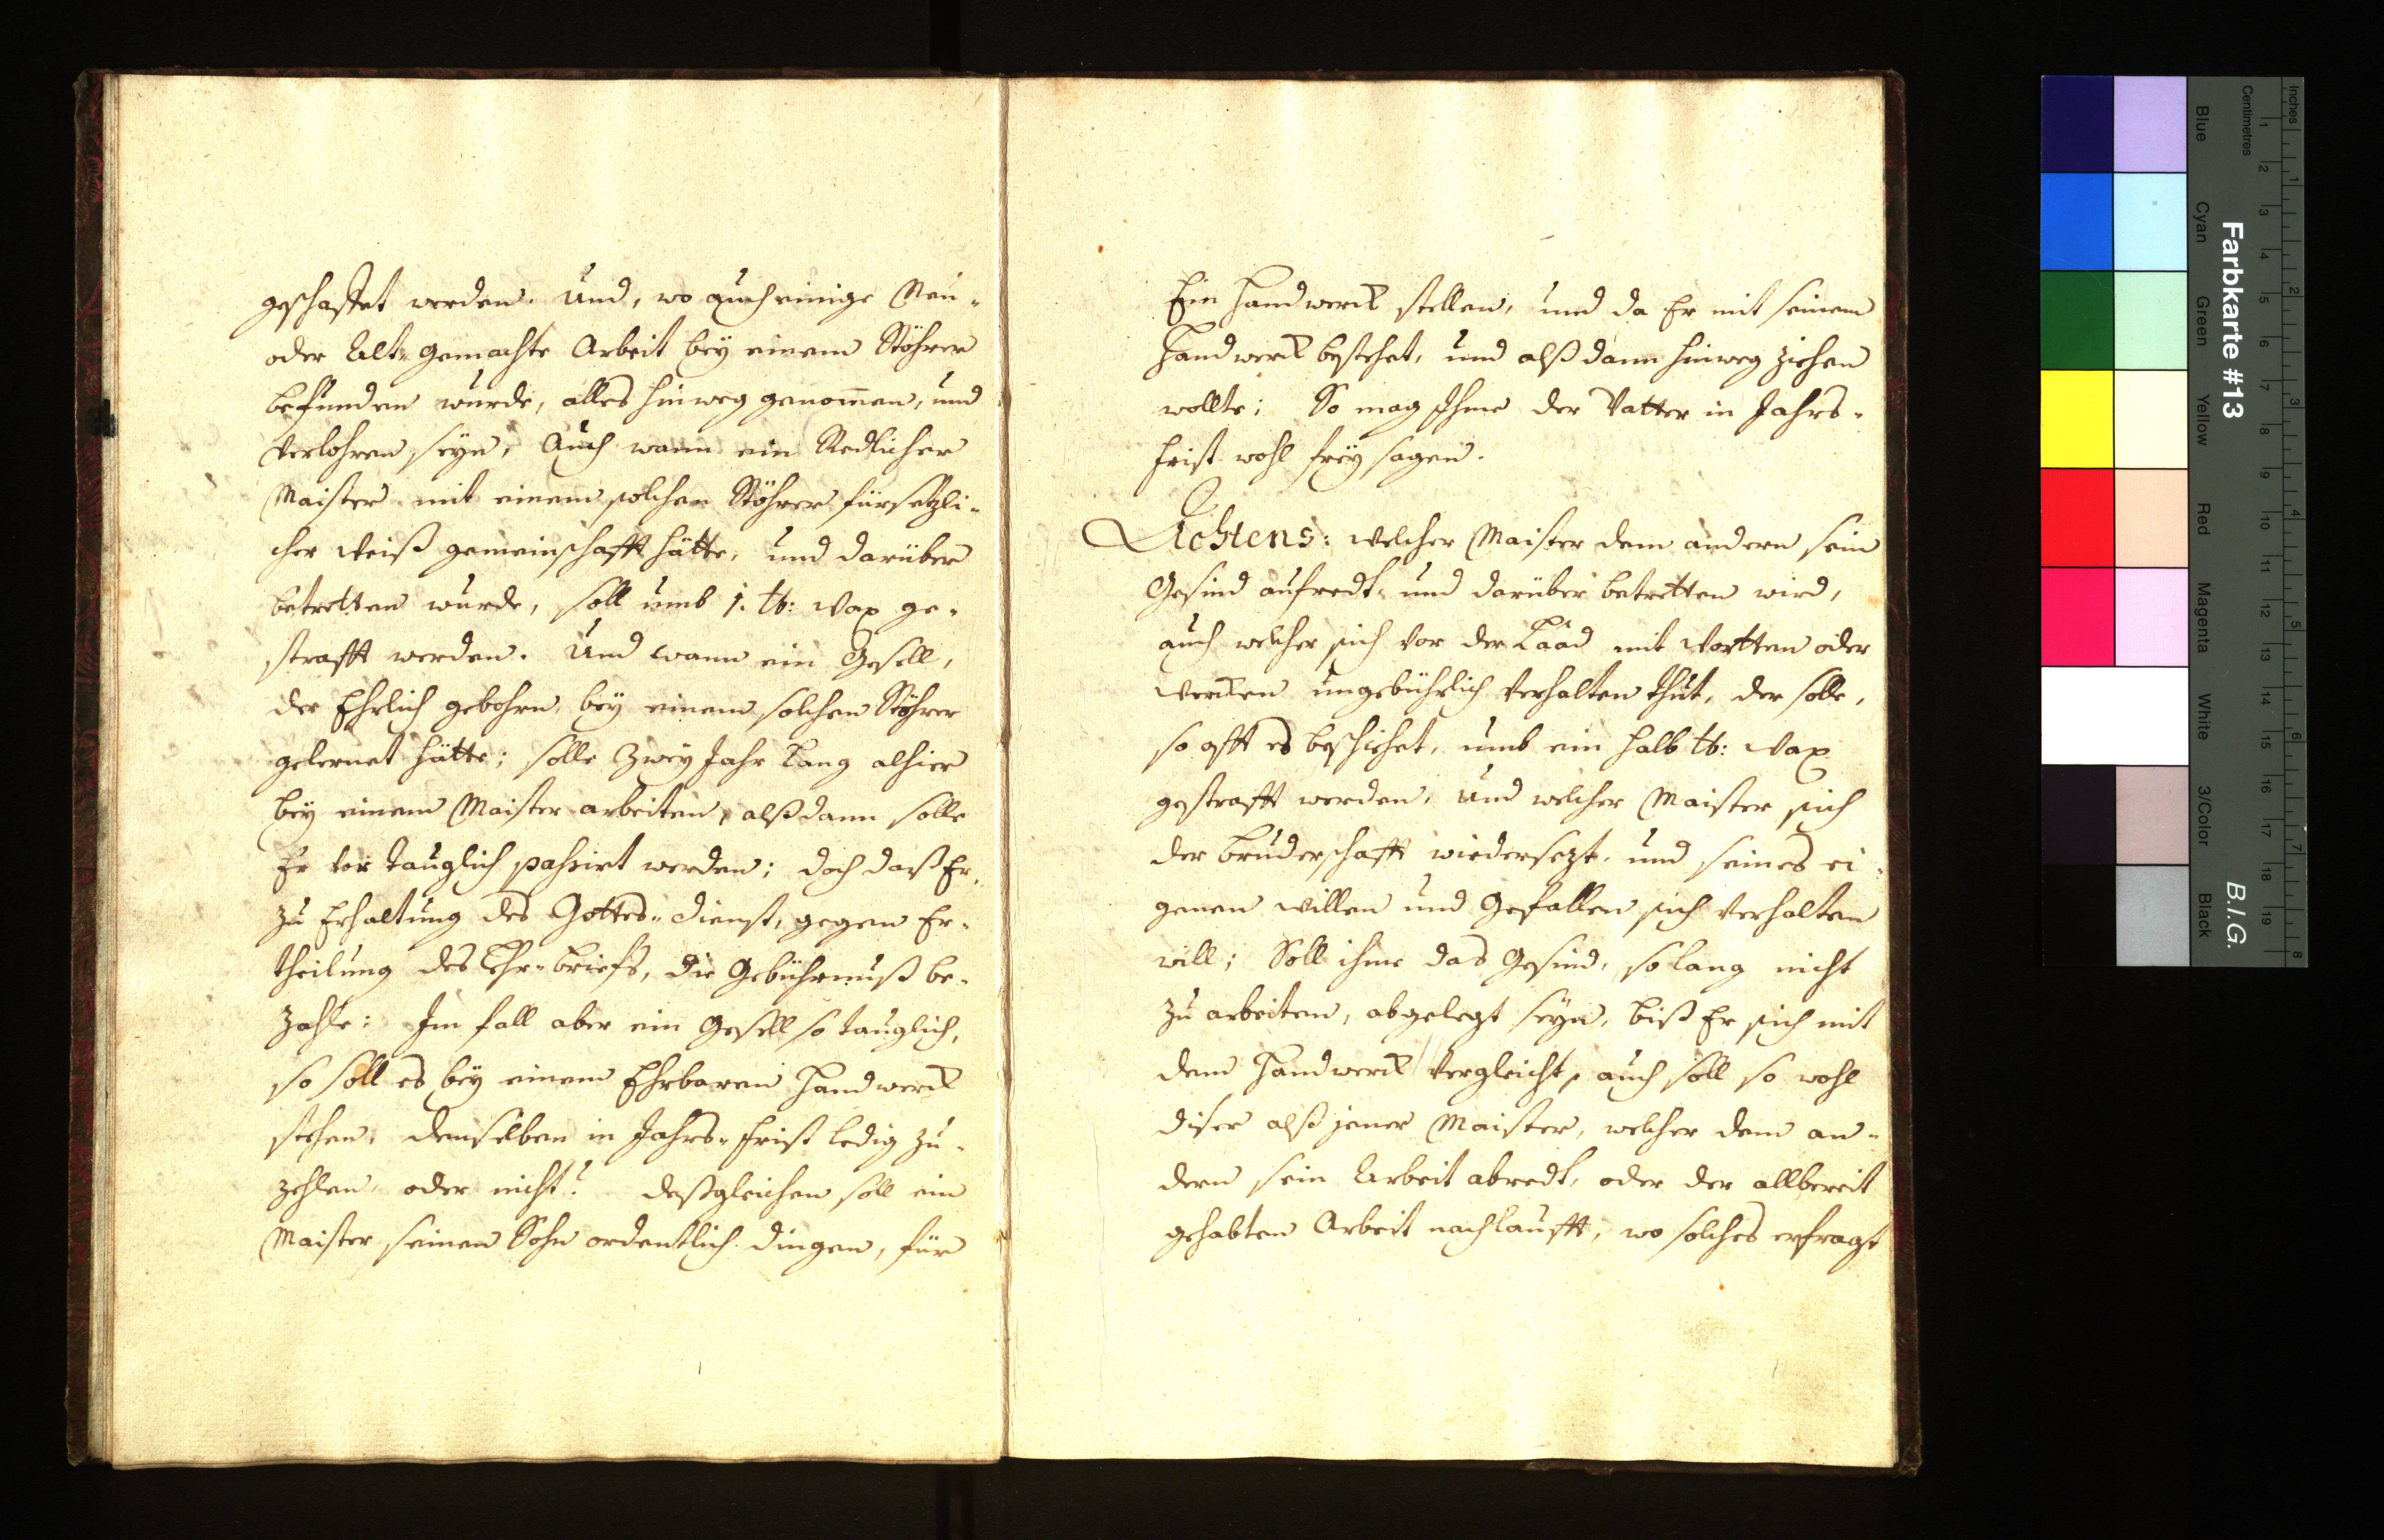 geschaffet werden. Und, wo auch einige Neu-
oder Alt-gemachte Arbeit bey einem Stöhrer
befunden wurde, alles hinweg genom̅en, und
verlohren seyn, Auch wann ein Redlicher
Maister mit einem solchen Stöhrer fürsetzli-
cher Weiß gemeinschafft hätte, und darüber
betretten wurde, soll umb 1. ℔: Wax ge-
strafft werden. Und wann ein Gesell,
der Ehrlich gebohrn, bey einem solchen Stöhrer
gelernet hätte; solle Zwey Jahr Lang alhier
bey einem Maister arbeiten, alßdann solle
Er vor tauglich passirt werden; doch daß Er,
zu Erhaltung des Gottes-dienst, gegen Er-
theilung des Lehr-briefs, die Gebührnuß be-
zahle: Im fall aber ein Gesell so tauglich,
so soll es bey einem Ehrbaren Handwerck
stehen, demselben in Jahrs-frist ledig zu-
zehlen, oder nicht? deßgleichen soll ein
Maister seinen Sohn ordentlich dingen, für
Ein Handwerck stellen, und da Er mit seinem
Handwerck bestehet, und alß dann hinweg ziehen
wollte; So mag Ihme der Vatter in Jahrs-
frist wohl frey sagen.
Achtens: Welcher Maister dem andern sein
Gesind aufredt, und darüber betretten wird,
auch welcher sich vor der Laad mit Wortten oder
Wercken ungebührlich verhalten thut, der solle,
so offt es beschiehet, umb ein halb ℔: Wax
gestrafft werden, Und welcher Maister sich
der Bruderschafft wiedersezt, und seines ei-
genen Willen und Gefallen sich verhalten
will; Soll ihme das Gesind, so lang nicht
zu arbeiten, abgelegt seyn, biß Er sich mit
dem Handwerck vergleicht, auch soll so wohl
diser alß jener Maister, welcher dem an-
dern sein Arbeit abredt, oder der allbereit
gehabten Arbeit nachlaufft, wo solches erfragt
Farbkarte #13
B.I.G.
Inches
Centimetres
1
2
3
4
5
6
7
8
9
10
11
12
13
14
15
16
17
18
19
1
2
3
4
5
6
7
8
Blue
Cyan
Green
Yellow
Red
Magenta
White
3/Color
Black